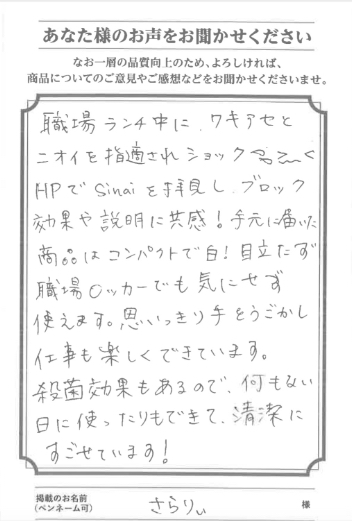 あなた様のお声をお聞かせください
なお一層の品質向上のため、よろしければ、
商品についてのご意見やご感想などをお聞かせくださいませ。
職場ランチ中に、ワキアセと
ニオイを指適されショック
HPで Sinai を拝見し、ブロック
効果や説明に共感！手元に届いた
商品はコンパクトで白！目立たず
職場ロッカーでも気にせず
使えます。思いっきり手をうごかし
仕事も楽しくできています。
殺菌効果もあるので、何もない
日に使ったりもできて、清潔に
すごせています！
掲載のお名前
(ペンネーム可)
さらりぃ
様